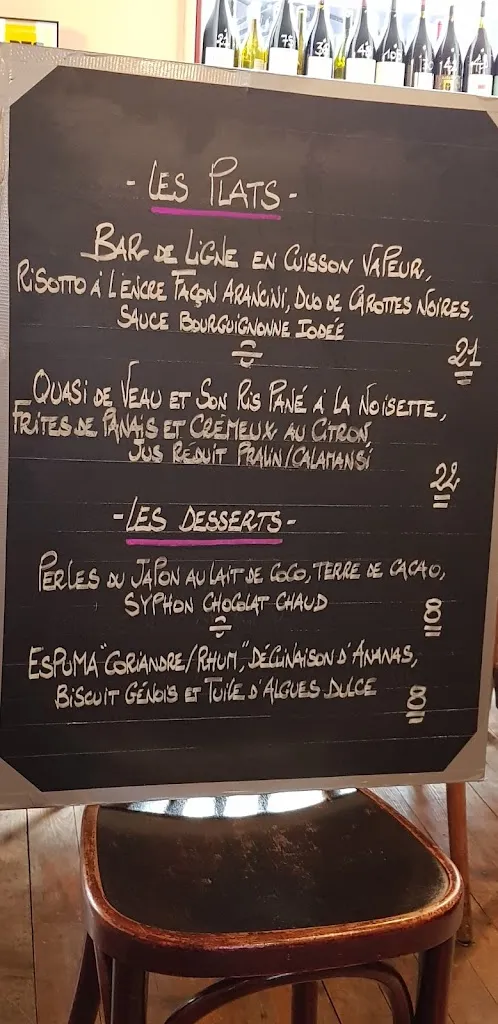 - LES PLATS -
BAR DE LIGNE EN CUISSON VAPEUR,
RISOTTO À L'ENCRE FAÇON ARANCINI, DUO DE CAROTTES NOIRES,
SAUCE BOURGUIGNONNE IODÉE
21
QUASI DE VEAU ET SON RIS PANÉ À LA NOISETTE,
FRITES DE PANAIS ET CRÉMEUX AU CITRON,
JUS RÉDUIT PRALIN/CALAMANSI
22
- LES DESSERTS -
PERLES DU JAPON AU LAIT DE COCO, TERRE DE CACAO,
SYPHON CHOCOLAT CHAUD
8
ESPUMA "CORIANDRE/RHUM", DÉCLINAISON D'ANANAS,
BISCUIT GÉNOIS ET TUILE D'ALGUES DULCE
8